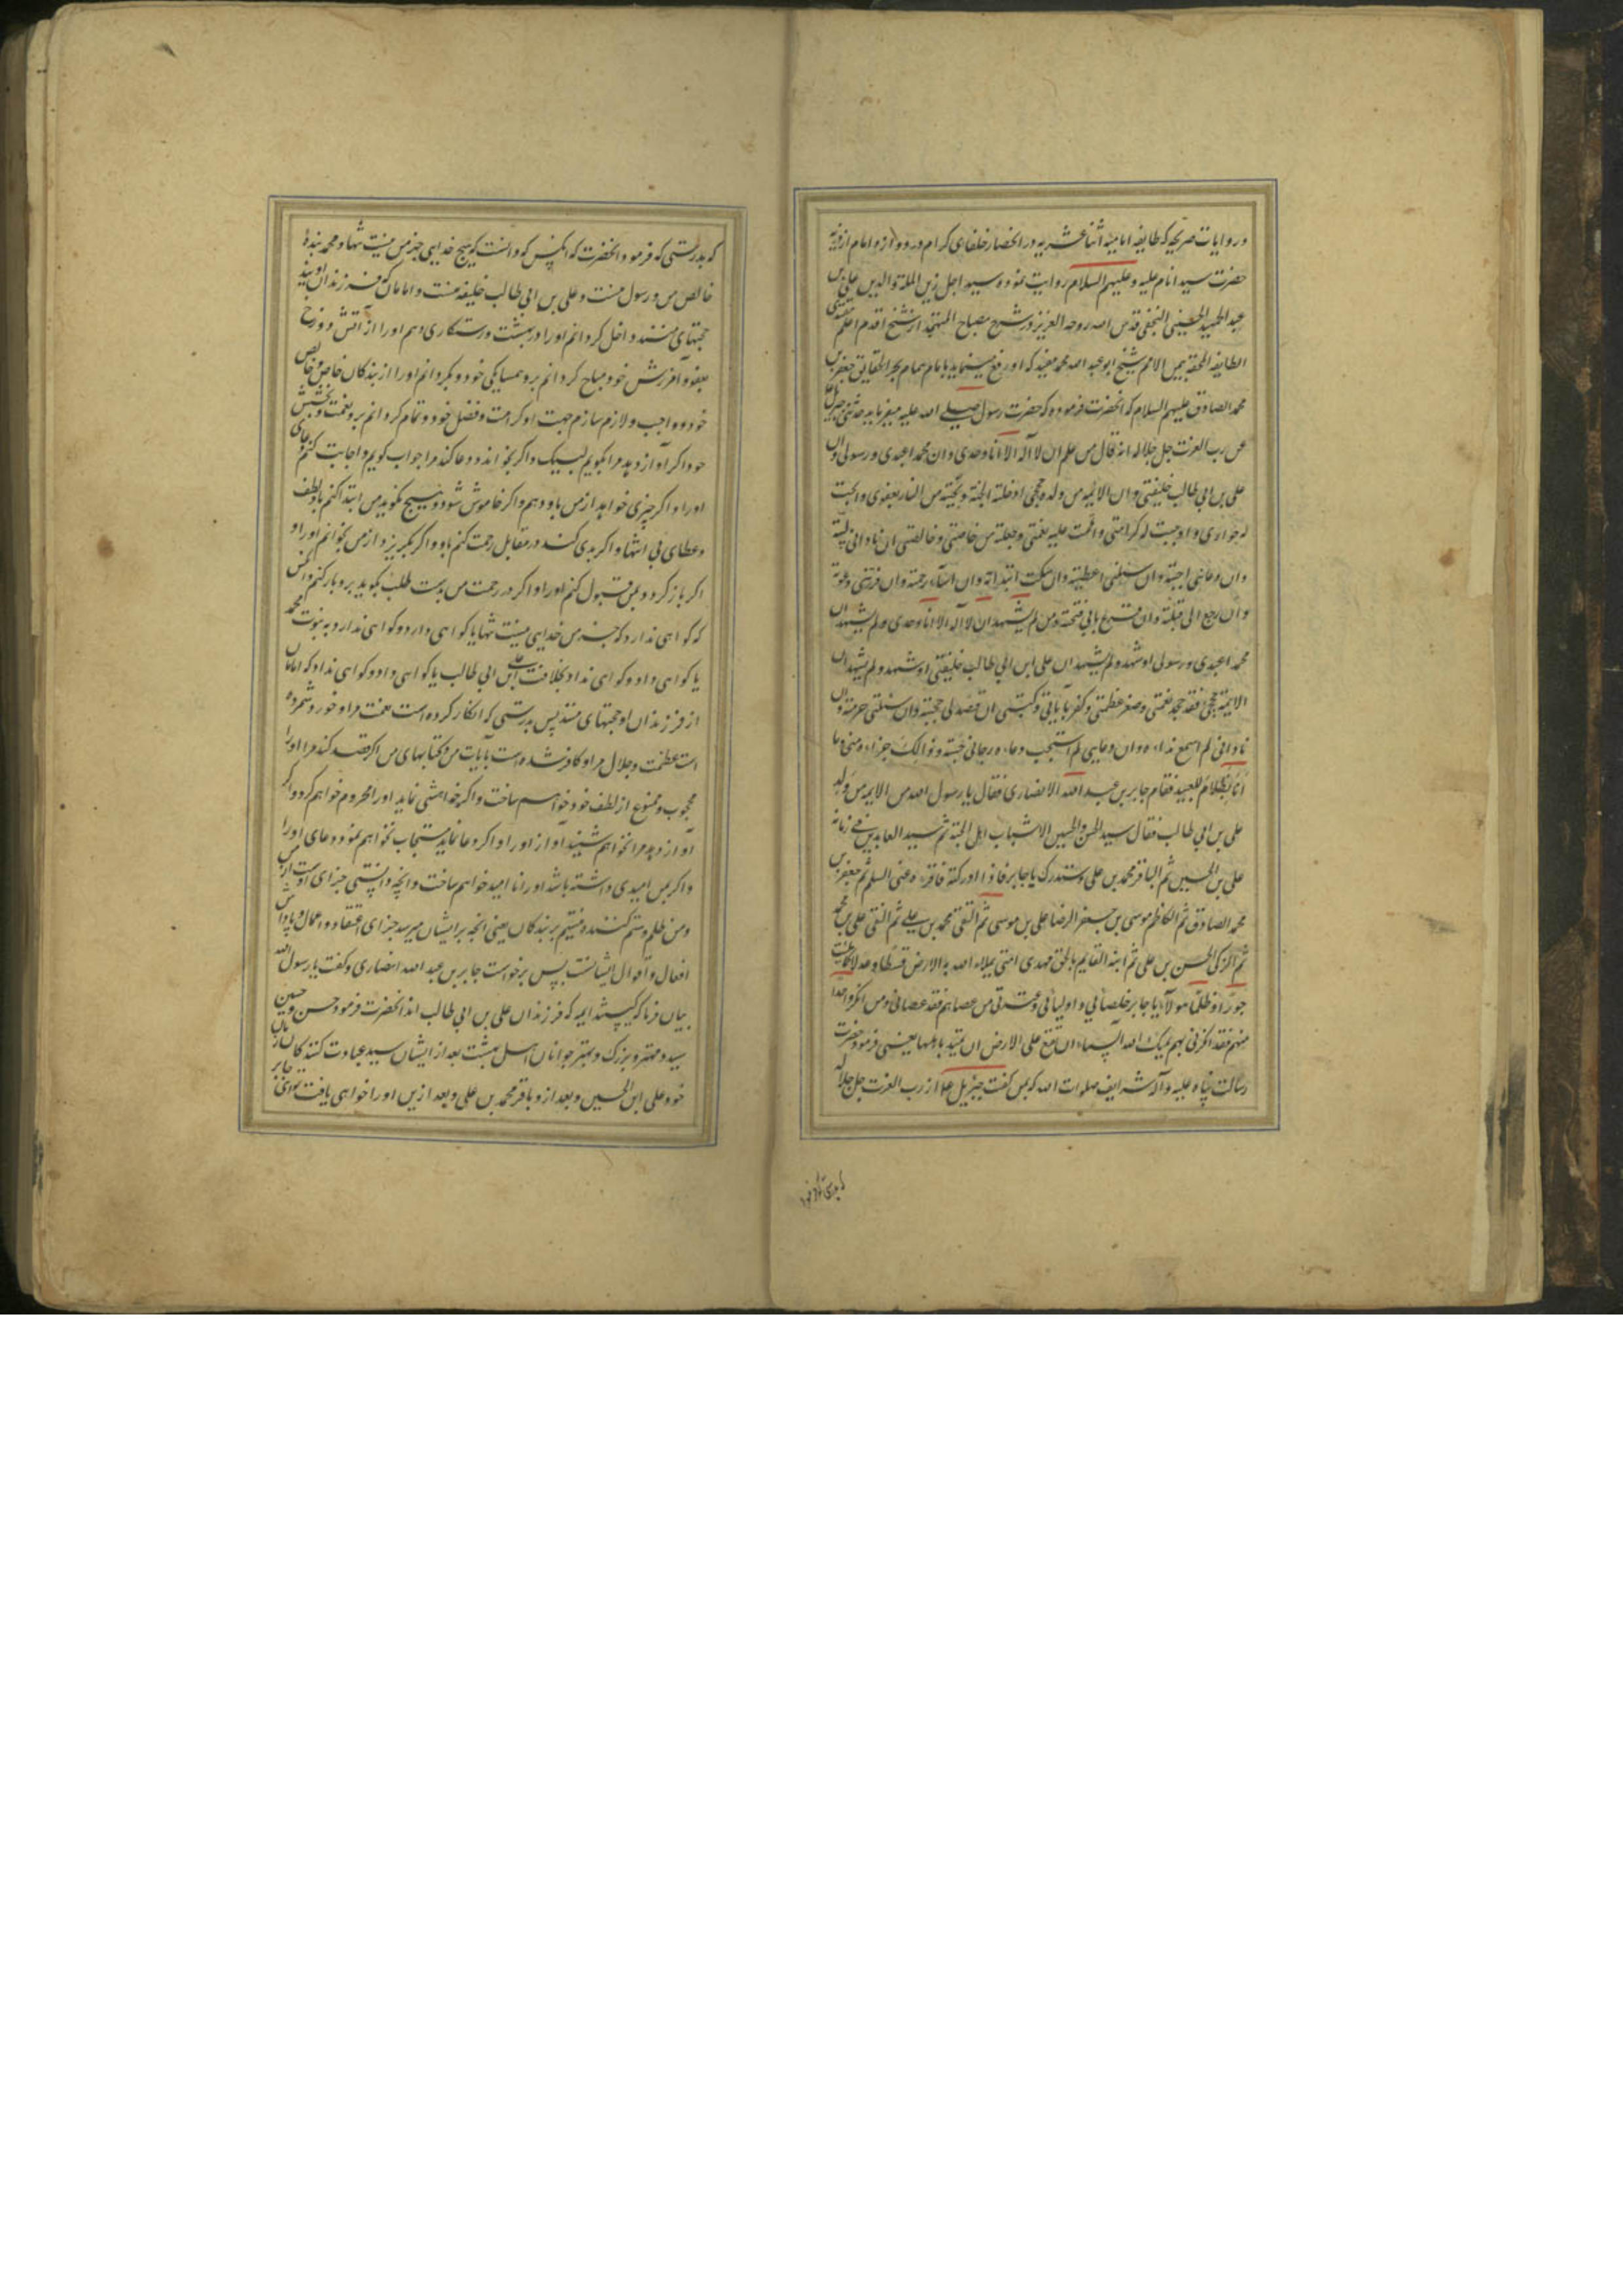 در روایات صریحه که طایفه امامیه اثنا عشریه در انحصار خلفای کرام در دوازده امام از
حضرت سید انام علیه و علیهم السلام روایت نموده سید اجل زین الملة والدین علی بن
عبد الحمید الحسینی النجفی قدس الله روحه العزیز در شرح مصباح المتهجد از شیخ اقدم اعلم
الطایفه المحقه بین الامم شیخ ابو عبد الله محمد مفید که او رفع مینماید بامام همام بحر الحقایق جعفر بن
محمد الصادق علیهم السلام که انحضرت فرموده که حضرت رسول صلی الله علیه میفرماید حدثنی جبرئیل
عن رب العزت جل جلاله انه قال من علم ان لا اله الا انا وحدی وان محمدا عبدی ورسولی وان
علی بن ابی طالب خلیفتی وان الائیمه من ولده حججی ادخلته الجنة ونجیته من النار بعفوی وابحت
له جواری و اوجبت له کرامتی واتممت علیه نعمتی وجعلته من خاصتی وخالصتی ان نادانی لبیته
وان دعانی اجبته وان سئلنی اعطیته وان سکت ابتداته وان اساء رحمته وان فر منی دعوته
وان رجع الی قبلته وان قرع بابی فتحته ومن لم یشهد ان لا اله الا انا وحدی ولم یشهد ان
محمدا عبدی ورسولی او شهد ولم یشهد ان علی ابن ابی طالب خلیفتی او شهد ولم یشهد ان
الائمه حججی فقد جحد نعمتی وصغر عظمتی وکفر بآیاتی وکتبی ان قصدنی حجبته وان سئلنی حرمته وان
نادانی لم اسمع نداءه وان دعانی لم استجب دعاءه وان رجانی خیبته وذالک جزاءه منی وما
انا بظلام للعبید فقام جابر بن عبد الله الانصاری فقال یا رسول الله من الائمه من ولد
علی بن ابی طالب فقال سید الحسن والحسین الا شباب اهل الجنة ثم سید العابدین فی زمانه
علی بن الحسین ثم الباقر محمد بن علی وستدرک یا جابر فاذا ادرکته فاقرءه عنی السلم ثم جعفر بن
محمد الصادق ثم الکاظم موسی بن جعفر ثم الرضا علی بن موسی ثم التقی محمد بن علی ثم النقی علی بن محمد
ثم الزکی الحسن بن علی ثم ابنه القایم بالحق مهدی امتی یملاء الله به الارض قسطا وعدلا کما ملئت
جورا وظلما هولاء یا جابر خلصائی و اولیائی وعترتی من عصاهم فقد عصانی ومن انکر واحدا
منهم فقد انکرنی بهم یمسک الله السماء ان تقع علی الارض ان تمید باهلها یعنی فرمود حضرت
رسالت پناه علیه وآله شرایف صلوات الله که بمن گفت جبرئیل از رب العزت جل جلاله
که بدرستی که فرمود انحضرت که آنکس که دانست که هیچ خدایی جز من نیست تنها و محمد بنده
خالص من و رسول منست و علی بن ابی طالب خلیفه منست و امامان که فرزندان اویند
حجتهای منند داخل کردانم او را در بهشت و رستکاری دهم او را از آتش دوزخ
بعفو و آمرزش خود و مباح کردانم برو همسایکی خود و بکردانم او را از بندکان خاص و خالص
خود و واجب و لازم سازم جهت او کرامت و فضل خود و تمام کردانم برو نعمت و بخشش
خود اکر آواز دهد مرا بکویم لبیک و اکر بخواند و دعا کند مرا جواب کویم و اجابت کنم دعای
او را و اکر چیزی خواهد از من باو دهم و اکر خاموش شود و هیچ نکوید من ابتدا کنم باو بلطف
و عطای بی انتها و اکر بدی کند در مقابل رحمت کنم باو و اکر بکریزد از من بخوانم او را و
اکر باز کردد بمن قبول کنم او را و اکر در رحمت من بدست طلب بکوبد برو باز کنم و آنکس
که کواهی ندارد که جز من خدایی نیست تنها یا کواهی دارد و کواهی ندارد به نبوت محمد
یا کواهی داد و کواهی نداد بخلافت علی ابن ابی طالب یا کواهی داد و کواهی نداد که امامان
از فرزندان او حجتهای منند پس بدرستی که انکار کرده است نعمت مرا و خورد شمرده
است عظمت و جلال مرا و کافر شده است بآیات من و کتابهای من اکر قصد کند مرا او را
محجوب و ممنوع از لطف خود خواهم ساخت و اکر خواهشی نماید او را محروم خواهم کرد و اکر
آواز دهد مرا نخواهم شنید آواز او را و اکر دعا نماید مستجاب نخواهم نمود دعای او را
و اکر بمن امیدی داشته باشد او را نا امید خواهم ساخت و اینچه دانستی جزای اوست از من
و من ظلم و ستم کننده نیستم بر بندکان یعنی آنچه بر ایشان میرسد جزای اعتقاد و اعمال و پاداش
افعال و اقوال ایشانست پس برخواست جابر بن عبد الله انصاری و کفت یا رسول الله
بیان فرما که کیستند ایمه که فرزندان علی بن ابی طالب اند انحضرت فرمود حسن و حسین
سید و مهتر و بزرک و بهتر جوانان اهل بهشت بعد از ایشان سید عبادت کنندکان زمان
خود علی ابن الحسین و بعد ازو باقر محمد بن علی و بعد ازین او را خواهی یافت تو ای جابر